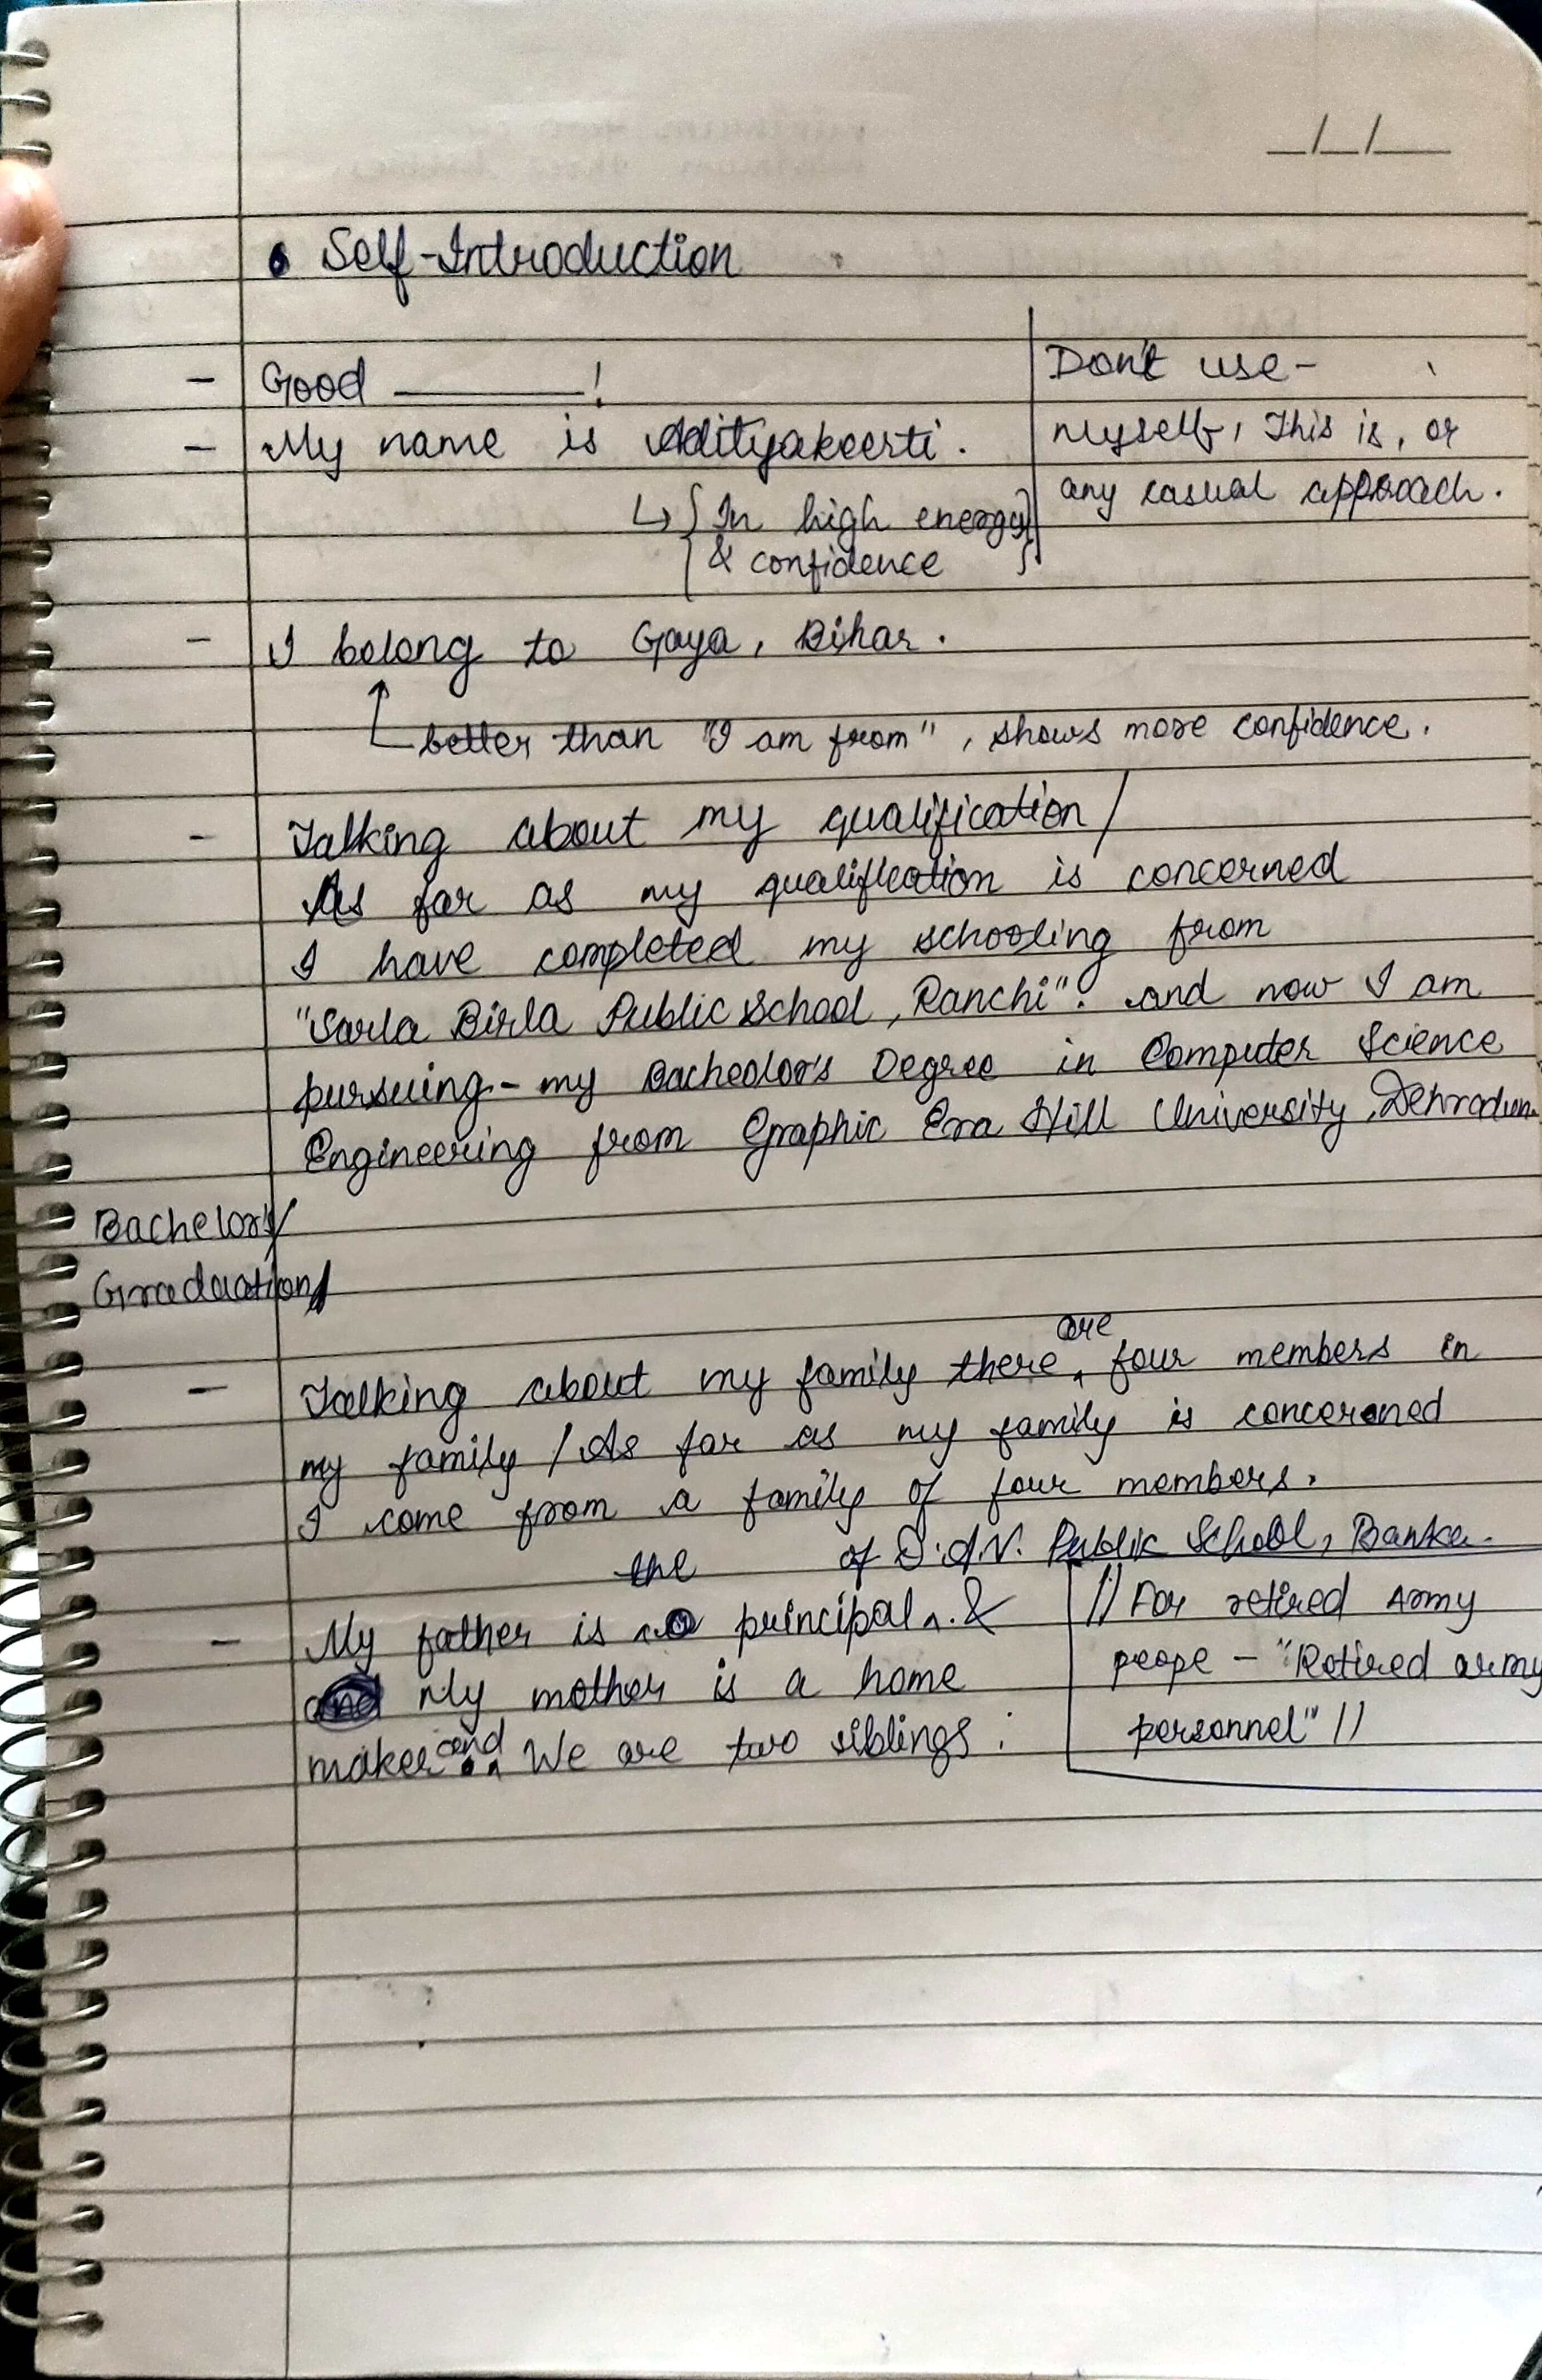 _/_/_
• Self-Introduction
- Good ______!
- My name is Adityakeerti.
↳ {In high energy
& confidence}
Don't use-
myself, This is, or
any casual approach.
- I belong to Gaya, Bihar.
better than "I am from", shows more confidence.
- Talking about my qualification/
As far as my qualification is concerned
I have completed my schooling from
"Sarla Birla Public School, Ranchi". and now I am
pursuing - my Bachelor's Degree in Computer Science
Engineering from Graphic Era Hill University, Dehradun.
Bachelor's/
Graduation/
- Talking about my family there are four members in
my family / As far as my family is concerned
I come from a family of four members.
- My father is the principal of D.A.V. Public School, Banka. &
My mother is a home
maker and We are two siblings.
// For retired Army
peope - "Retired army
personnel" //